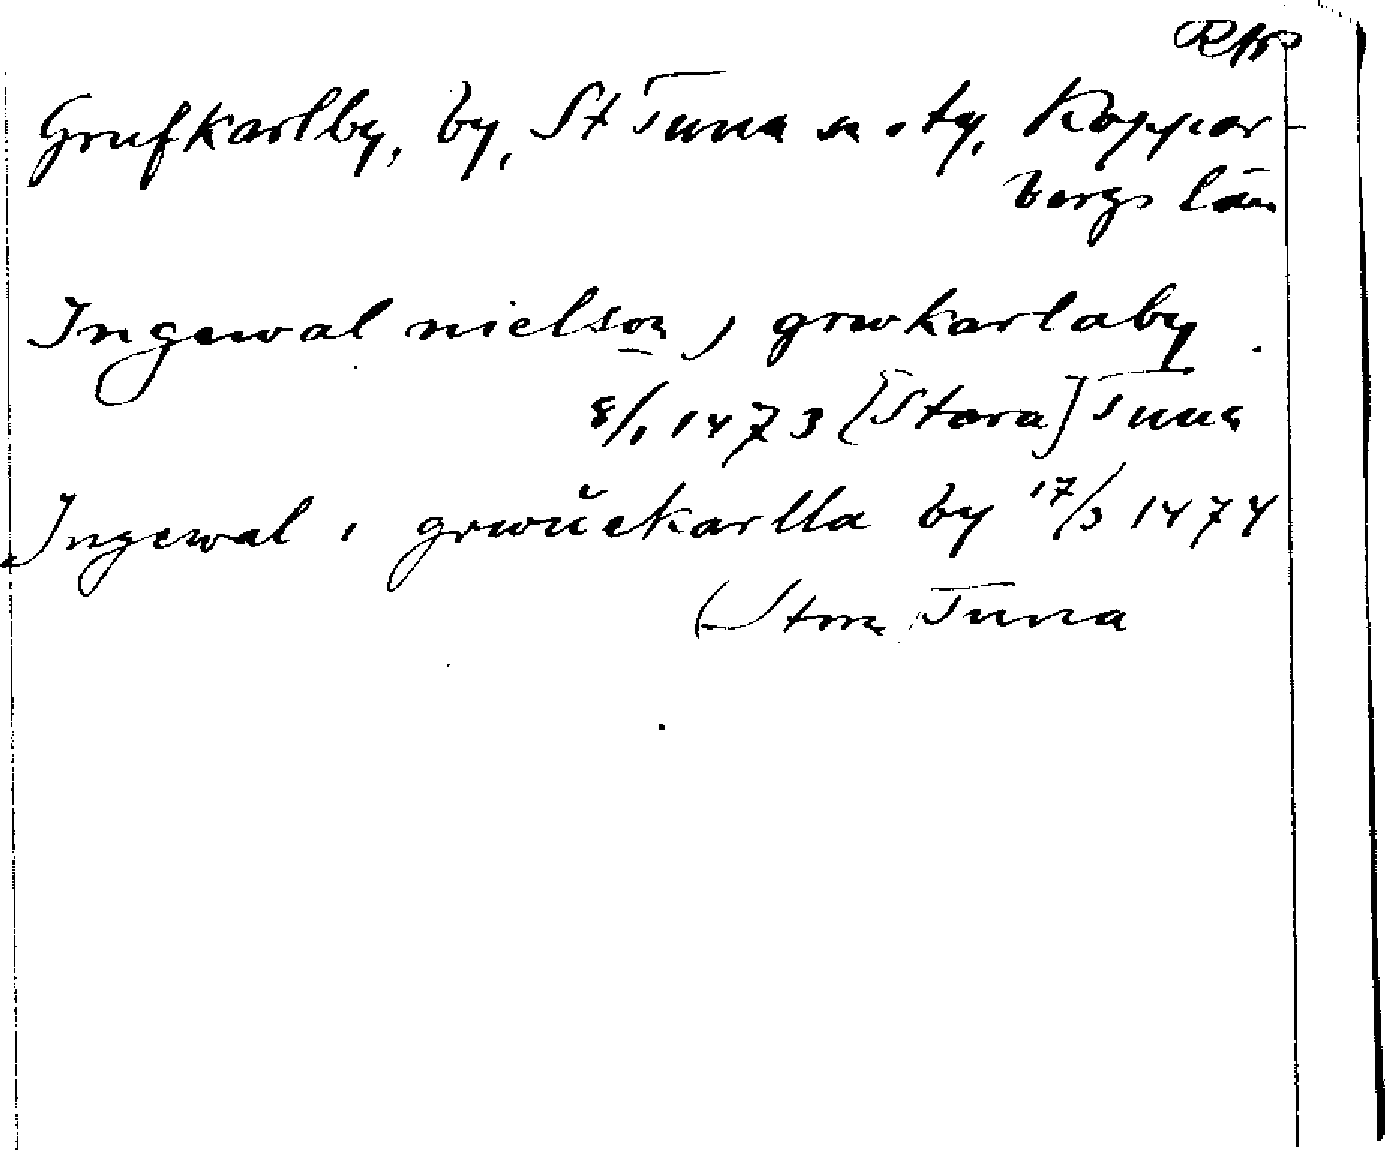 Grufkarlby, by, St Tuna sn o ty, Koppar-
bergs län
Ingewal nielson j grwkarlaby
8/1 1473 [Stora] Tuna
Ingewal i grwŭekarlla by 17/3 1474
(Stora Tuna